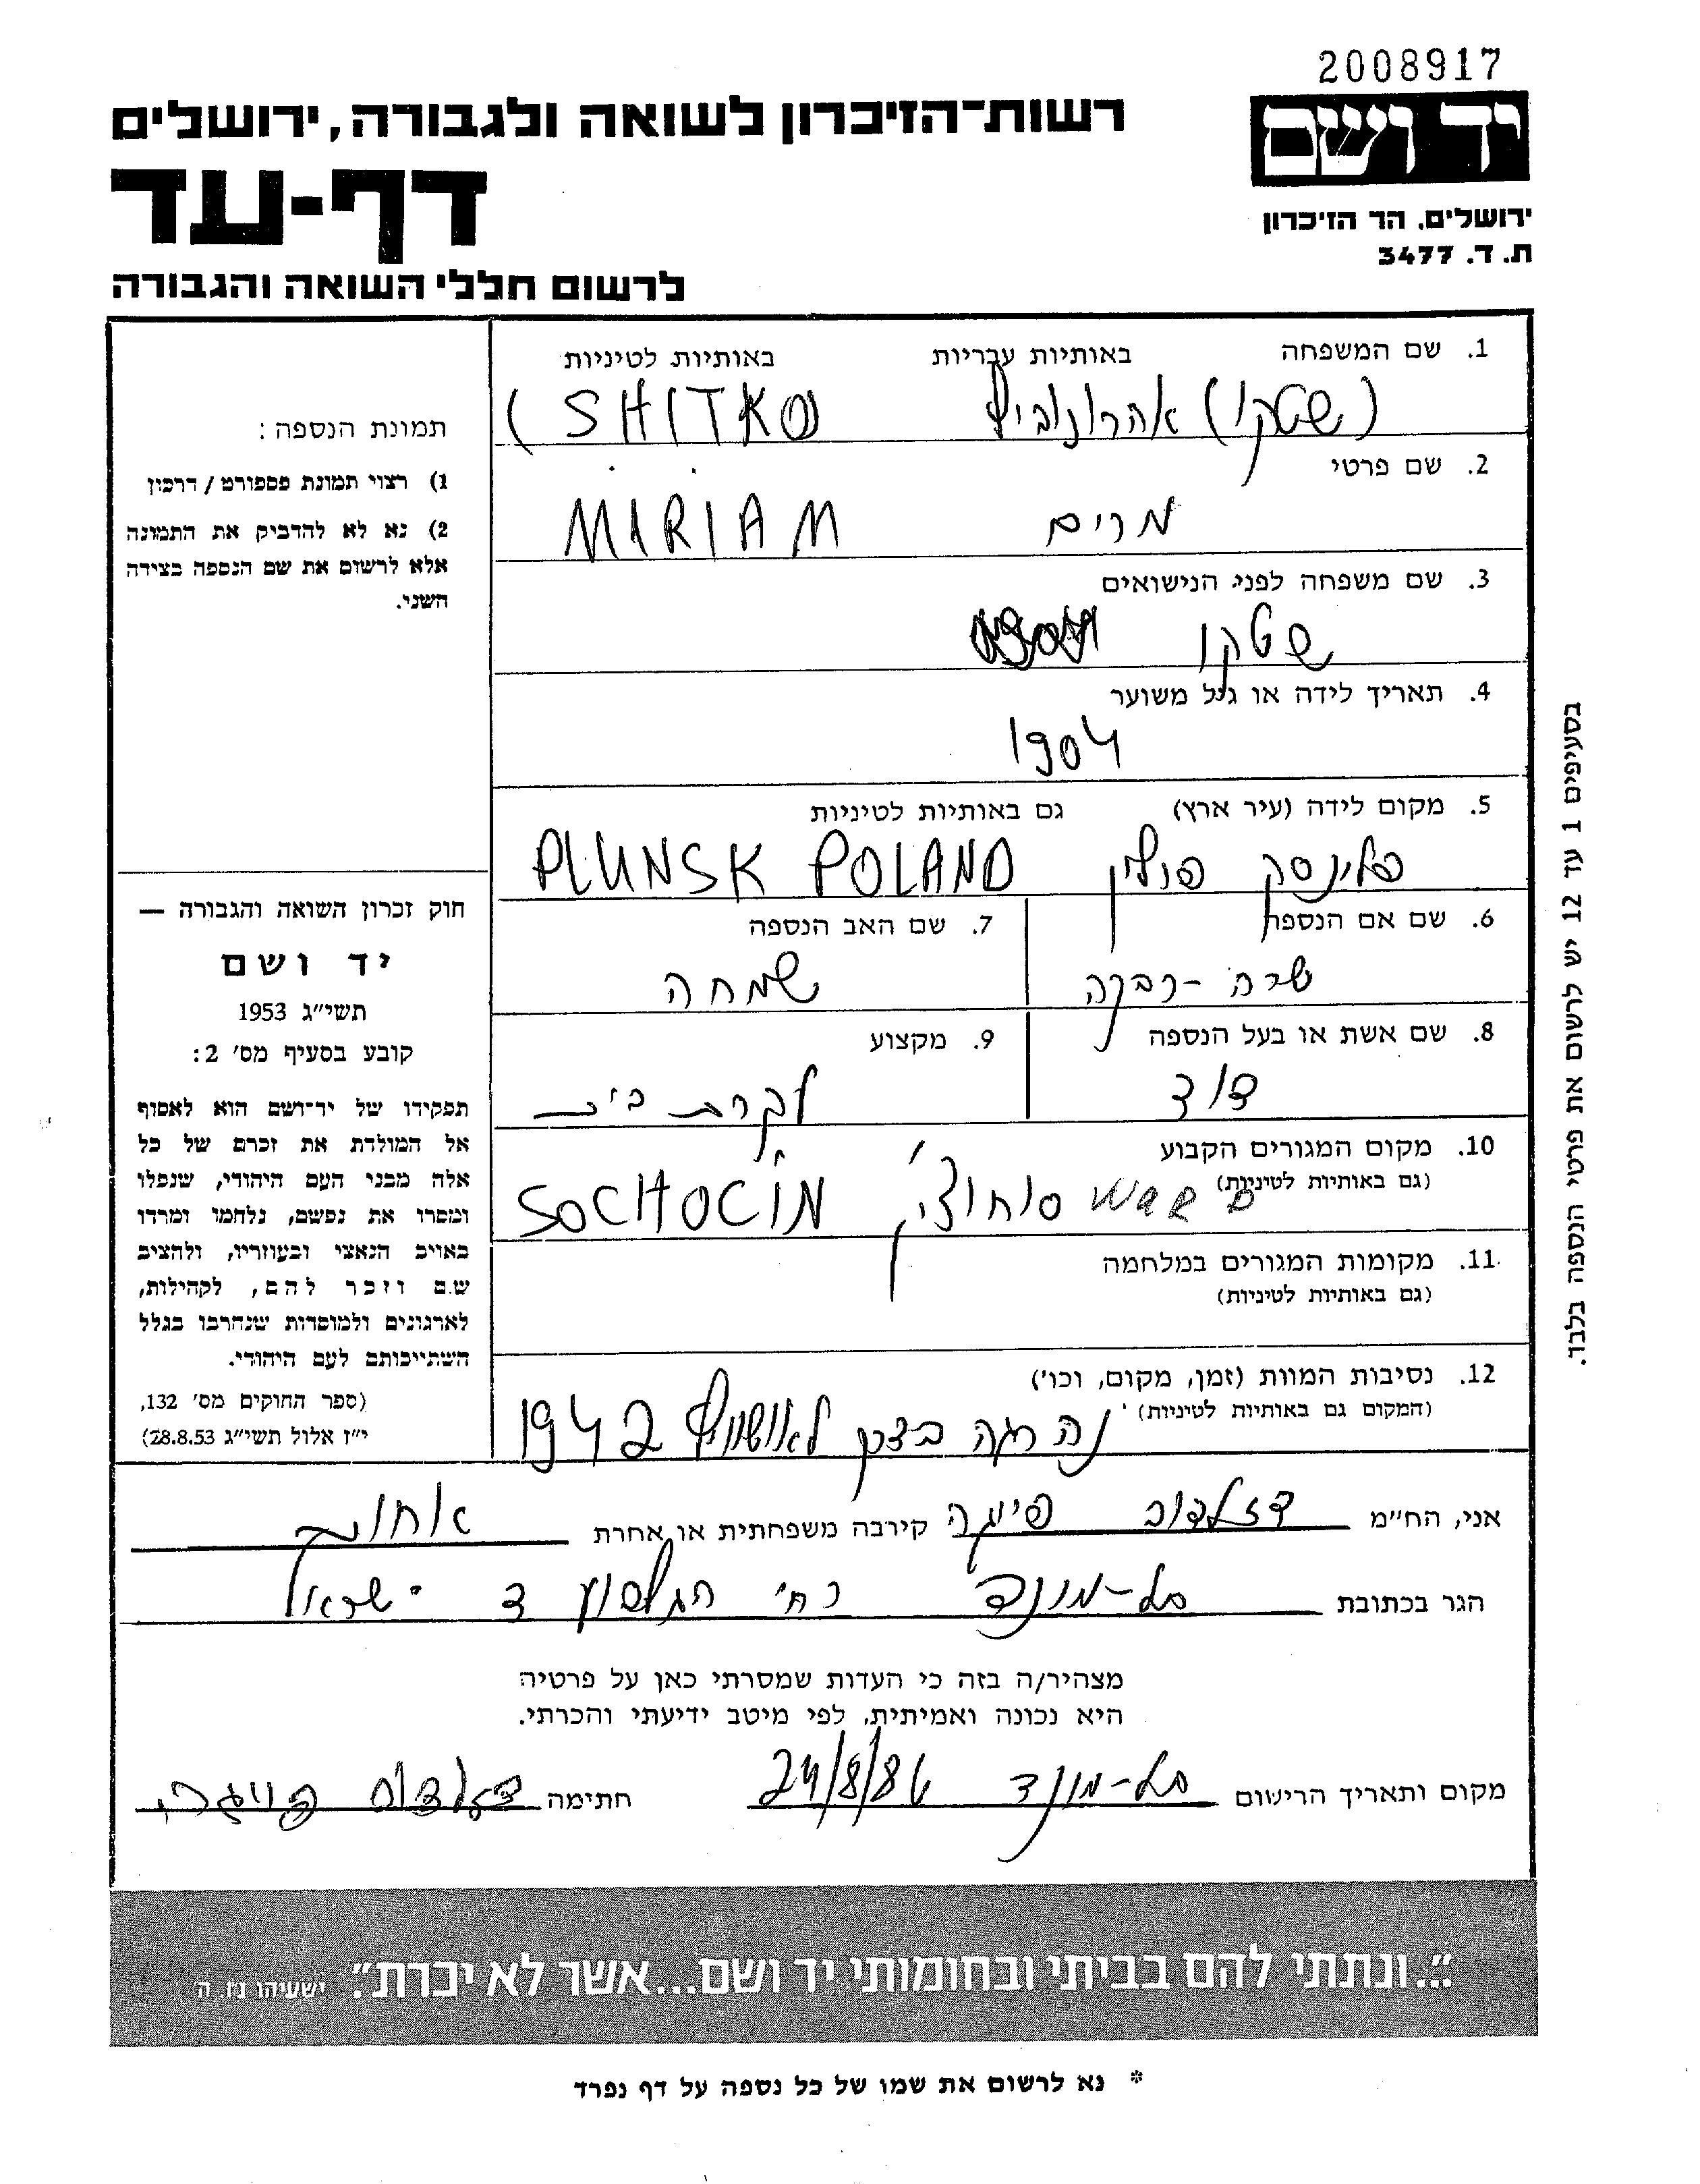 2008917
יד ושם
רשות-הזיכרון לשואה ולגבורה, ירושלים
דף-עד
ירושלים. הר הזיכרון
ת. ד. 3477
לרשום חללי השואה והגבורה
1. שם המשפחה באותיות עבריות באותיות לטיניות
(שטקו) אהרונוביץ (SHITKO)
2. שם פרטי
מרים MIRIAM
3. שם משפחה לפני הנישואים
שטקו
4. תאריך לידה או גיל משוער
1904
5. מקום לידה (עיר ארץ) גם באותיות לטיניות
פלינסק פולין PLUNSK POLAND
6. שם אם הנספה 7. שם האב הנספה
שרה-רבקה שמחה
8. שם אשת או בעל הנספה 9. מקצוע
דוד עקרת בית
10. מקום המגורים הקבוע
(גם באותיות לטיניות)
סוחוצין SOCHOCIN
11. מקומות המגורים במלחמה
(גם באותיות לטיניות)
12. נסיבות המוות (זמן, מקום, וכו')
(המקום גם באותיות לטיניות)
נהרגה בדרך לאושוויץ 1942
תמונת הנספה:
1) רצוי תמונת פספורט / דרכון
2) נא לא להדביק את התמונה
אלא לרשום את שם הנספה בצידה
השני.
חוק זכרון השואה והגבורה —
יד ושם
תשי"ג 1953
קובע בסעיף מס' 2:
תפקידו של יד-ושם הוא לאסוף
אל המולדת את זכרם של כל
אלה מבני העם היהודי, שנפלו
ומסרו את נפשם, נלחמו ומרדו
באויב הנאצי ובעוזריו, ולהציב
שם וזכר להם, לקהילות,
לארגונים ולמוסדות שנהרבו בגלל
השתייכותם לעם היהודי.
(ספר החוקים מס' 132,
י"ז אלול תשי"ג 28.8.53)
בסעיפים 1 עד 12 יש לרשום את פרטי הנספה בלבד.
אני, הח"מ קירבה משפחתית או אחרת אחות
הגר בכתובת תל-מונד רח' 3 ישראל
מצהיר/ה בזה כי העדות שמסרתי כאן על פרטיה
היא נכונה ואמיתית, לפי מיטב ידיעתי והכרתי.
מקום ותאריך הרישום תל-מונד 24/8/86 חתימה
"...ונתתי להם בביתי ובחומותי יד ושם...אשר לא יכרת". ישעיהו נו, ה
* נא לרשום את שמו של כל נספה על דף נפרד